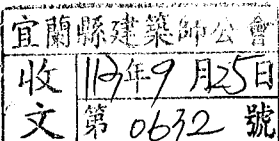 宜蘭縣建築師公會
收文
113年9月25日
第0632號